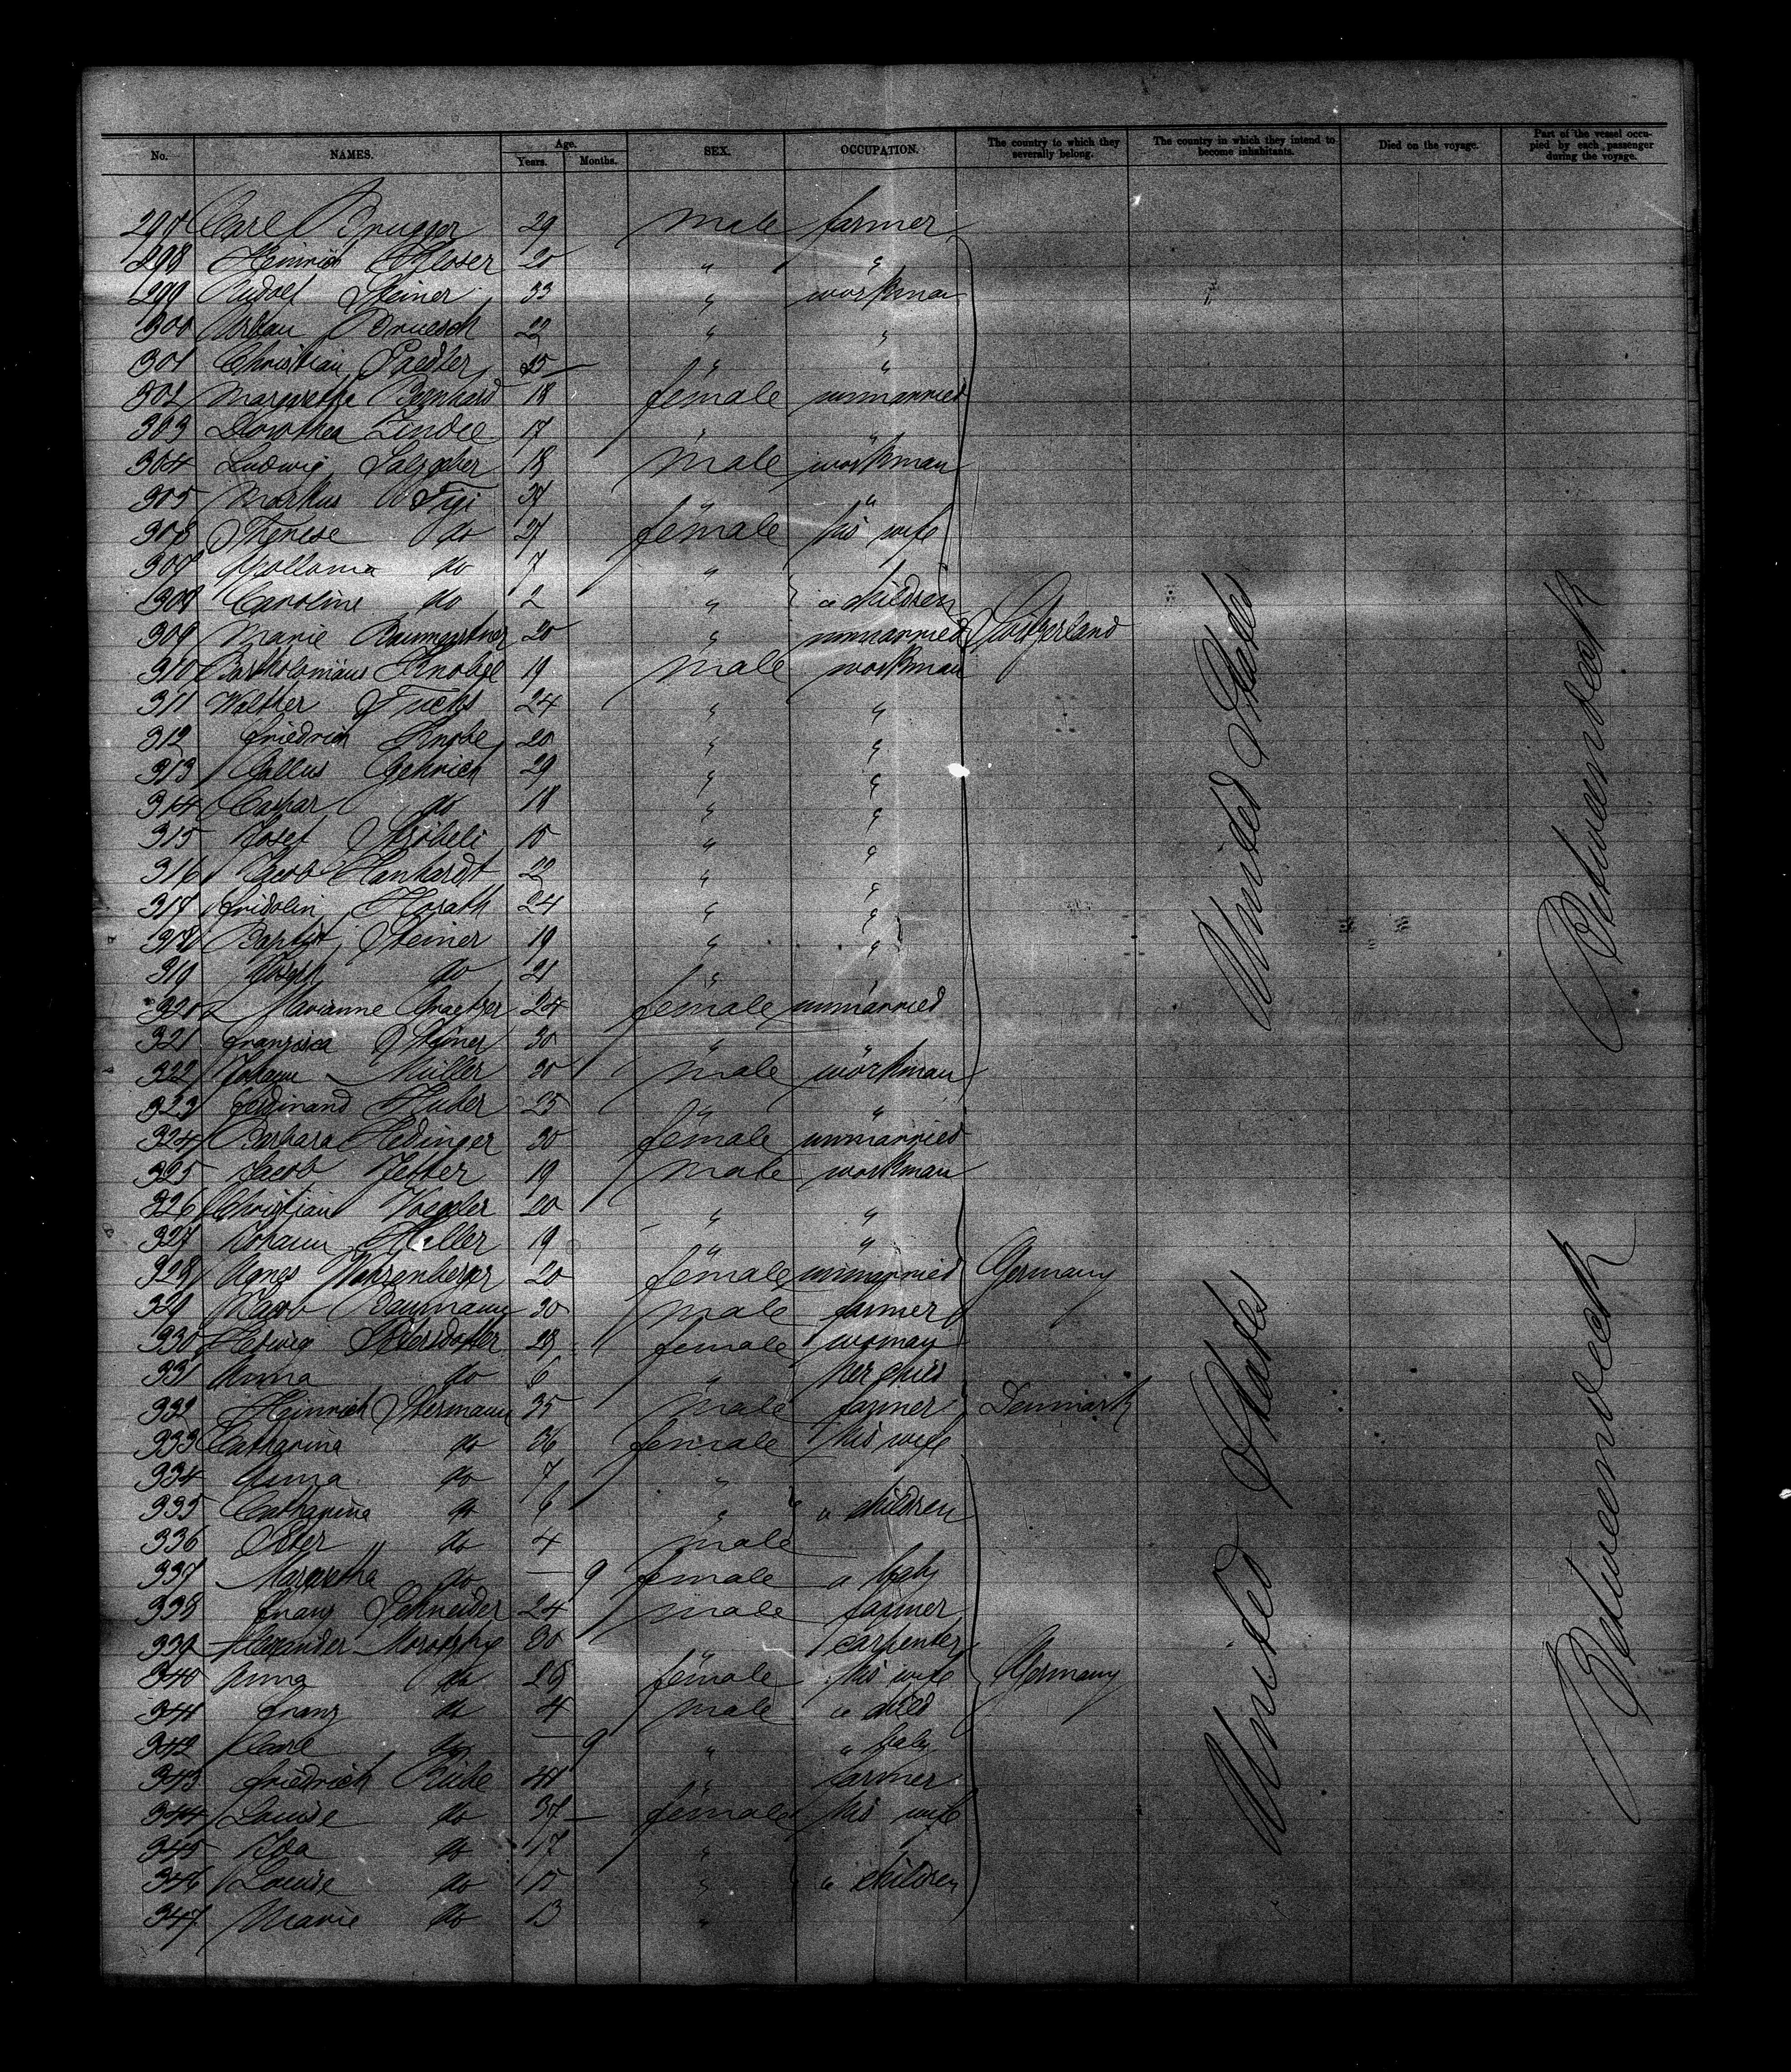 No. NAMES. Age. Years. Months. SEX. OCCUPATION. The country to which they severally belong. The country in which they intend to become inhabitants. Died on the voyage. Part of the vessel occupied by each passenger during the voyage.
297 Carl Brugger 29 male farmer
298 Heinrich 20 " "
299 Rudolf Steiner 33 " workman
300 Urban Bruesch 22 " "
301 Christian 25 " "
302 Margaretha 18 female unmarried
303 Dorothea 17 " "
304 Ludwig Salzgeber 18 male workman
305 Markus Figi 37 " "
306 Therese do 27 female his wife
307 Apollonia do 7 "
308 Caroline do 2 " " children
309 Marie Baumgartner 20 " unmarried Switzerland
310 Bartholomäus Knobel 19 male workman
311 Walther Fuchs 24 " "
312 Friedrich 20 " "
313 Gallus 29 " "
314 Caspar do 18 " "
315 Josef " "
316 Jacob 22 " "
317 Fridolin Horath 24 " "
318 Baptist Steiner 19 " "
319 Joseph do 21 "
320 Marianne Graetzer 24 female unmarried
321 Franzisca Steiner 30 " "
322 Johann Müller 30 male workman
323 Ferdinand Huber 25 " "
324 Barbara Hedinger 30 female unmarried
325 Jacob 19 male workman
326 Christian 20 " "
327 Johann Haller 19 " "
328 Agnes 20 female unmarried Germany
329 Jacob Baumann 30 male farmer
330 Hedwig female woman
331 Anna do 6 " her child
332 Heinrich 35 male farmer Denmark
333 Catharina do 36 female his wife
334 Anna do 7 "
335 Catharina do 6 " " children
336 Peter do 4 male
337 Margaretha do — 9 female a baby
338 Franz Schneider 24 male farmer
339 Alexander 30 " carpenter
340 Anna do female his wife Germany
341 Franz do 4 male " child
342 Carl do — 9 " " baby
343 Friedrich 41 " farmer
344 Louise do 37 female his wife
345 Ida do 17 "
346 Louise do 15 " " children
347 Marie do 13 "
United States
Betweendeck
United States
Betweendeck